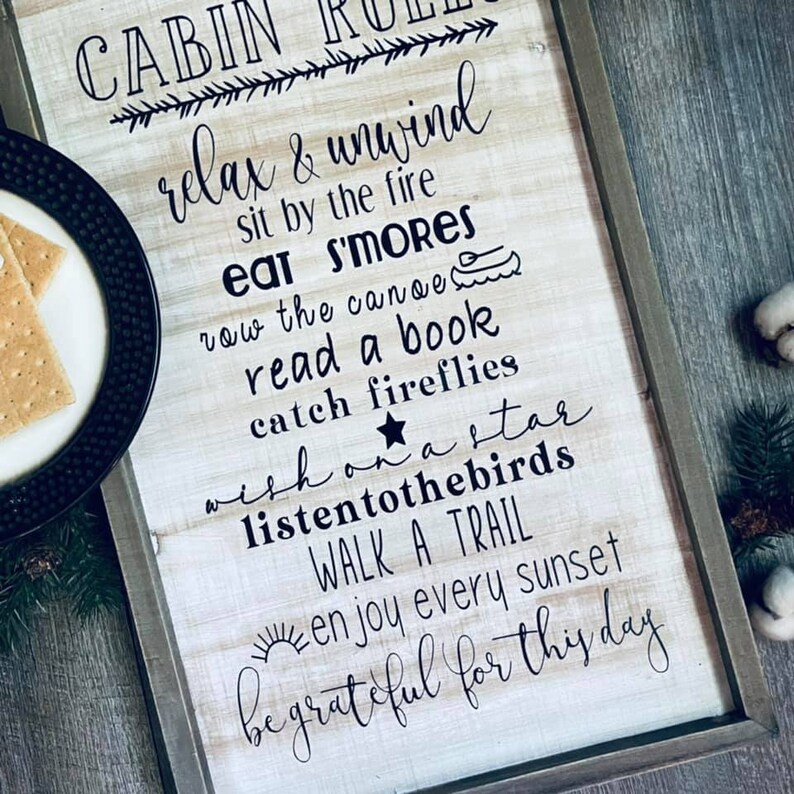 CABIN RULES
relax & unwind
sit by the fire
eat S'MORES
row the canoe
read a book
catch fireflies
wish on a star
listentothebirds
WALK A TRAIL
enjoy every sunset
be grateful for this day